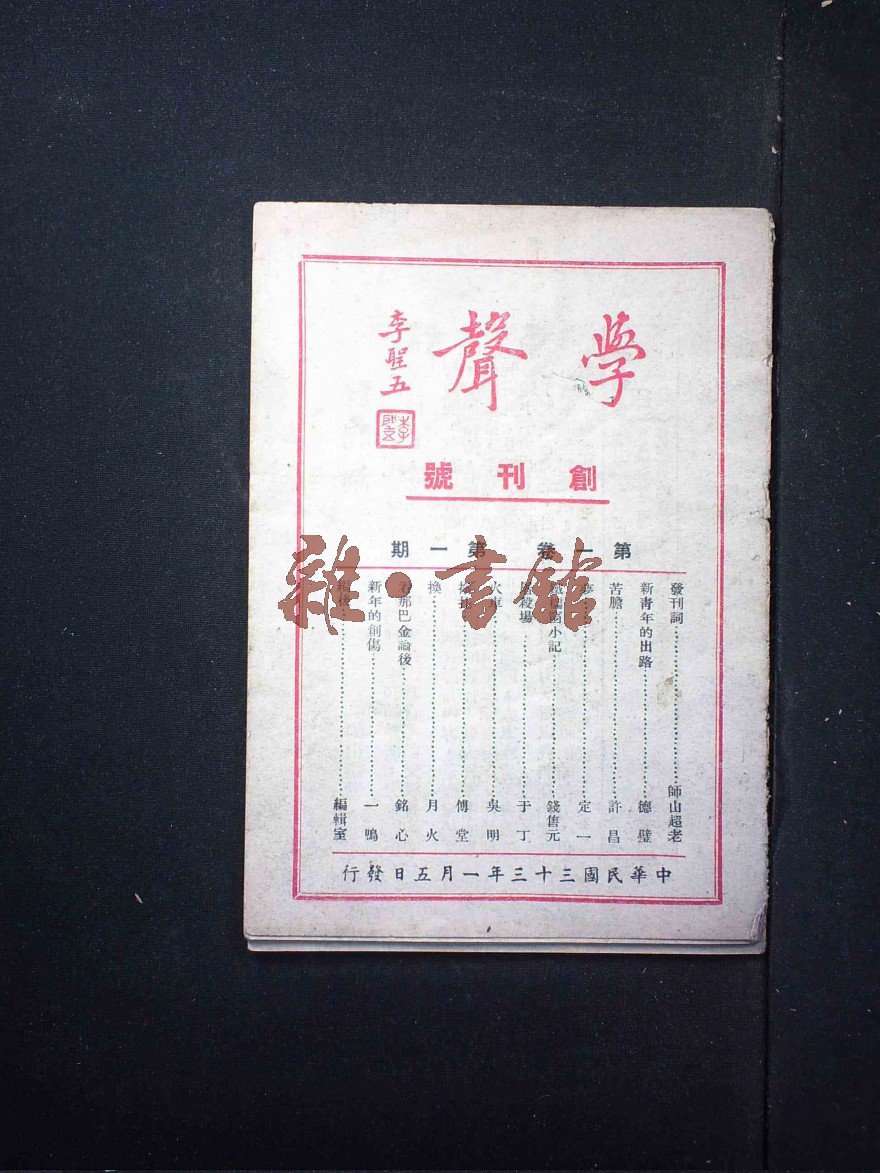 學聲
李聖五
創刊號
第一卷 第一期
發刊詞 師山超老
新青年的出路 德璧
苦膽 許昌
定一
小記 錢售元
殺場 于丁
火車 吳明
傅堂
換 月火
看那巴金論後 銘心
新年的創傷 一鳴
編後 編輯室
中華民國三十三年一月五日發行
雜·書館